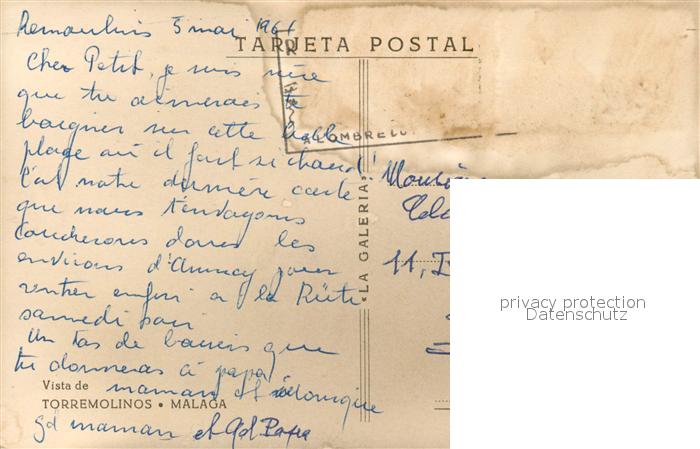 Remoulins 5 mai 1961
TARJETA POSTAL
Cher Petit, je suis sûre
que tu aimerais te
baigner sur cette belle
plage où il fait si chaud!
C'est notre dernière carte
que nous t'envoyons
coucherons dans les
environs d'Annecy pour
rentrer enfin à la
samedi soir
Un tas de baisers que
tu donneras à papa
maman et
gd maman et gd Papa
Vista de
TORREMOLINOS • MALAGA
«LA GALERIA»
11,
privacy protection
Datenschutz